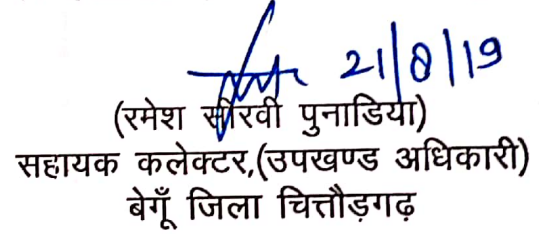 21/8/19
(रमेश सीरवी पुनाडिया)
सहायक कलेक्टर,(उपखण्ड अधिकारी)
बेगूँ जिला चित्तौड़गढ़